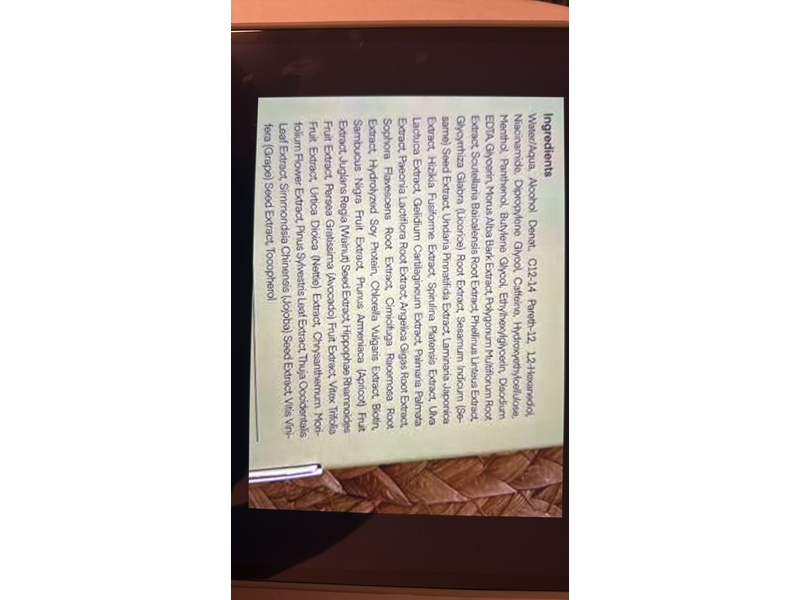 Ingredients
Water/Aqua, Alcohol Denat., C12-14 Pareth-12, 1,2-Hexanediol,
Niacinamide, Dipropylene Glycol, Caffeine, Hydroxyethylcellulose,
Menthol, Panthenol, Butylene Glycol, Ethylhexylglycerin, Disodium
EDTA, Glycerin, Morus Alba Bark Extract, Polygonum Multiflorum Root
Extract, Scutellaria Baicalensis Root Extract, Phellinus Linteus Extract,
Glycyrrhiza Glabra (Licorice) Root Extract, Sesamum Indicum (Se-
same) Seed Extract, Undaria Pinnatifida Extract, Laminaria Japonica
Extract, Hizikia Fusiforme Extract, Spirulina Platensis Extract, Ulva
Lactuca Extract, Gelidium Cartilagineum Extract, Palmaria Palmata
Extract, Paeonia Lactiflora Root Extract, Angelica Gigas Root Extract,
Sophora Flavescens Root Extract, Cimicifuga Racemosa Root
Extract, Hydrolyzed Soy Protein, Chlorella Vulgaris Extract, Biotin,
Sambucus Nigra Fruit Extract, Prunus Armeniaca (Apricot) Fruit
Extract, Juglans Regia (Walnut) Seed Extract, Hippophae Rhamnoides
Fruit Extract, Persea Gratissima (Avocado) Fruit Extract, Vitex Trifolia
Fruit Extract, Urtica Dioica (Nettle) Extract, Chrysanthemum Mori-
folium Flower Extract, Pinus Sylvestris Leaf Extract, Thuja Occidentalis
Leaf Extract, Simmondsia Chinensis (Jojoba) Seed Extract, Vitis Vini-
fera (Grape) Seed Extract, Tocopherol